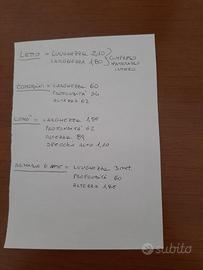 LETTO = LUNGHEZZA 2,10
LARGHEZZA 1,80
COMPRESO
MATERASSO
INTERO
COMODINI = LARGHEZZA 60
PROFONDITÀ 34
ALTEZZA 62
COMÒ = LARGHEZZA 1,25
PROFONDITÀ 62
ALTEZZA 89
SPECCHIO ALTO 1,10
ARMADIO 6 ANTE = LUNGHEZZA 3 MET.
PROFONDITÀ 60
ALTEZZA
subito